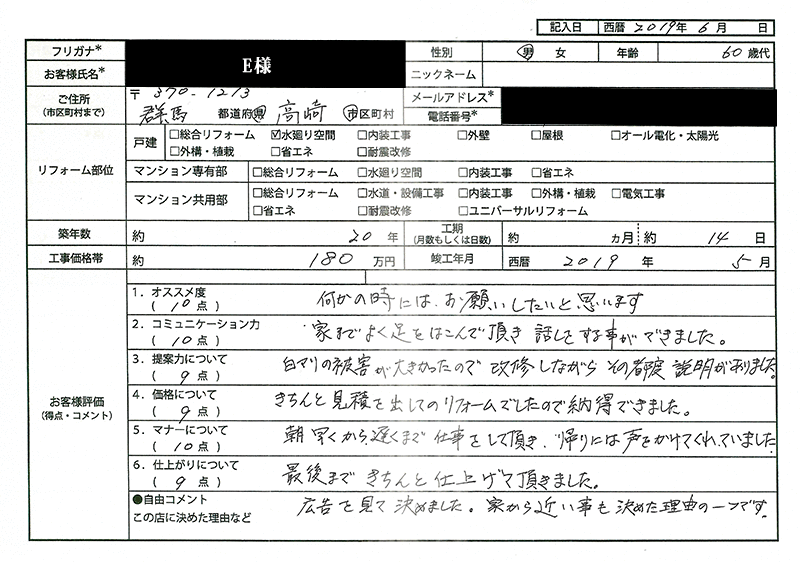 記入日 西暦 2019年 6月 日
フリガナ* 性別 男 女 年齢 60歳代
お客様氏名* E様 ニックネーム
ご住所 (市区町村まで) 〒370-1213 メールアドレス*
群馬 都道府県 高崎 市区町村 電話番号*
リフォーム部位 戸建 □総合リフォーム ☑水廻り空間 □内装工事 □外壁 □屋根 □オール電化・太陽光
□外構・植栽 □省エネ □耐震改修
マンション専有部 □総合リフォーム □水廻り空間 □内装工事 □省エネ
マンション共用部 □総合リフォーム □水道・設備工事 □内装工事 □外構・植栽 □電気工事
□省エネ □耐震改修 □ユニバーサルリフォーム
築年数 約 20年 工期 (月数もしくは日数) 約 カ月 約 14日
工事価格帯 約 180万円 竣工年月 西暦 2019年 5月
お客様評価 (得点・コメント)
1. オススメ度 (10点) 何かの時には、お願いしたいと思います
2. コミュニケーション力 (10点) 家までよく足をはこんで頂き 話しをする事ができました。
3. 提案力について (9点) 白アリの被害が大きかったので 改修しながら その都度 説明がありました。
4. 価格について (9点) きちんと見積を出してのリフォームでしたので納得できました。
5. マナーについて (10点) 朝早くから、遅くまで 仕事をして頂き、帰りには声をかけてくれていました
6. 仕上がりについて (9点) 最後まで きちんと仕上げて頂きました。
●自由コメント この店に決めた理由など 広告を見て決めました。家から近い事も決めた理由の一つです。